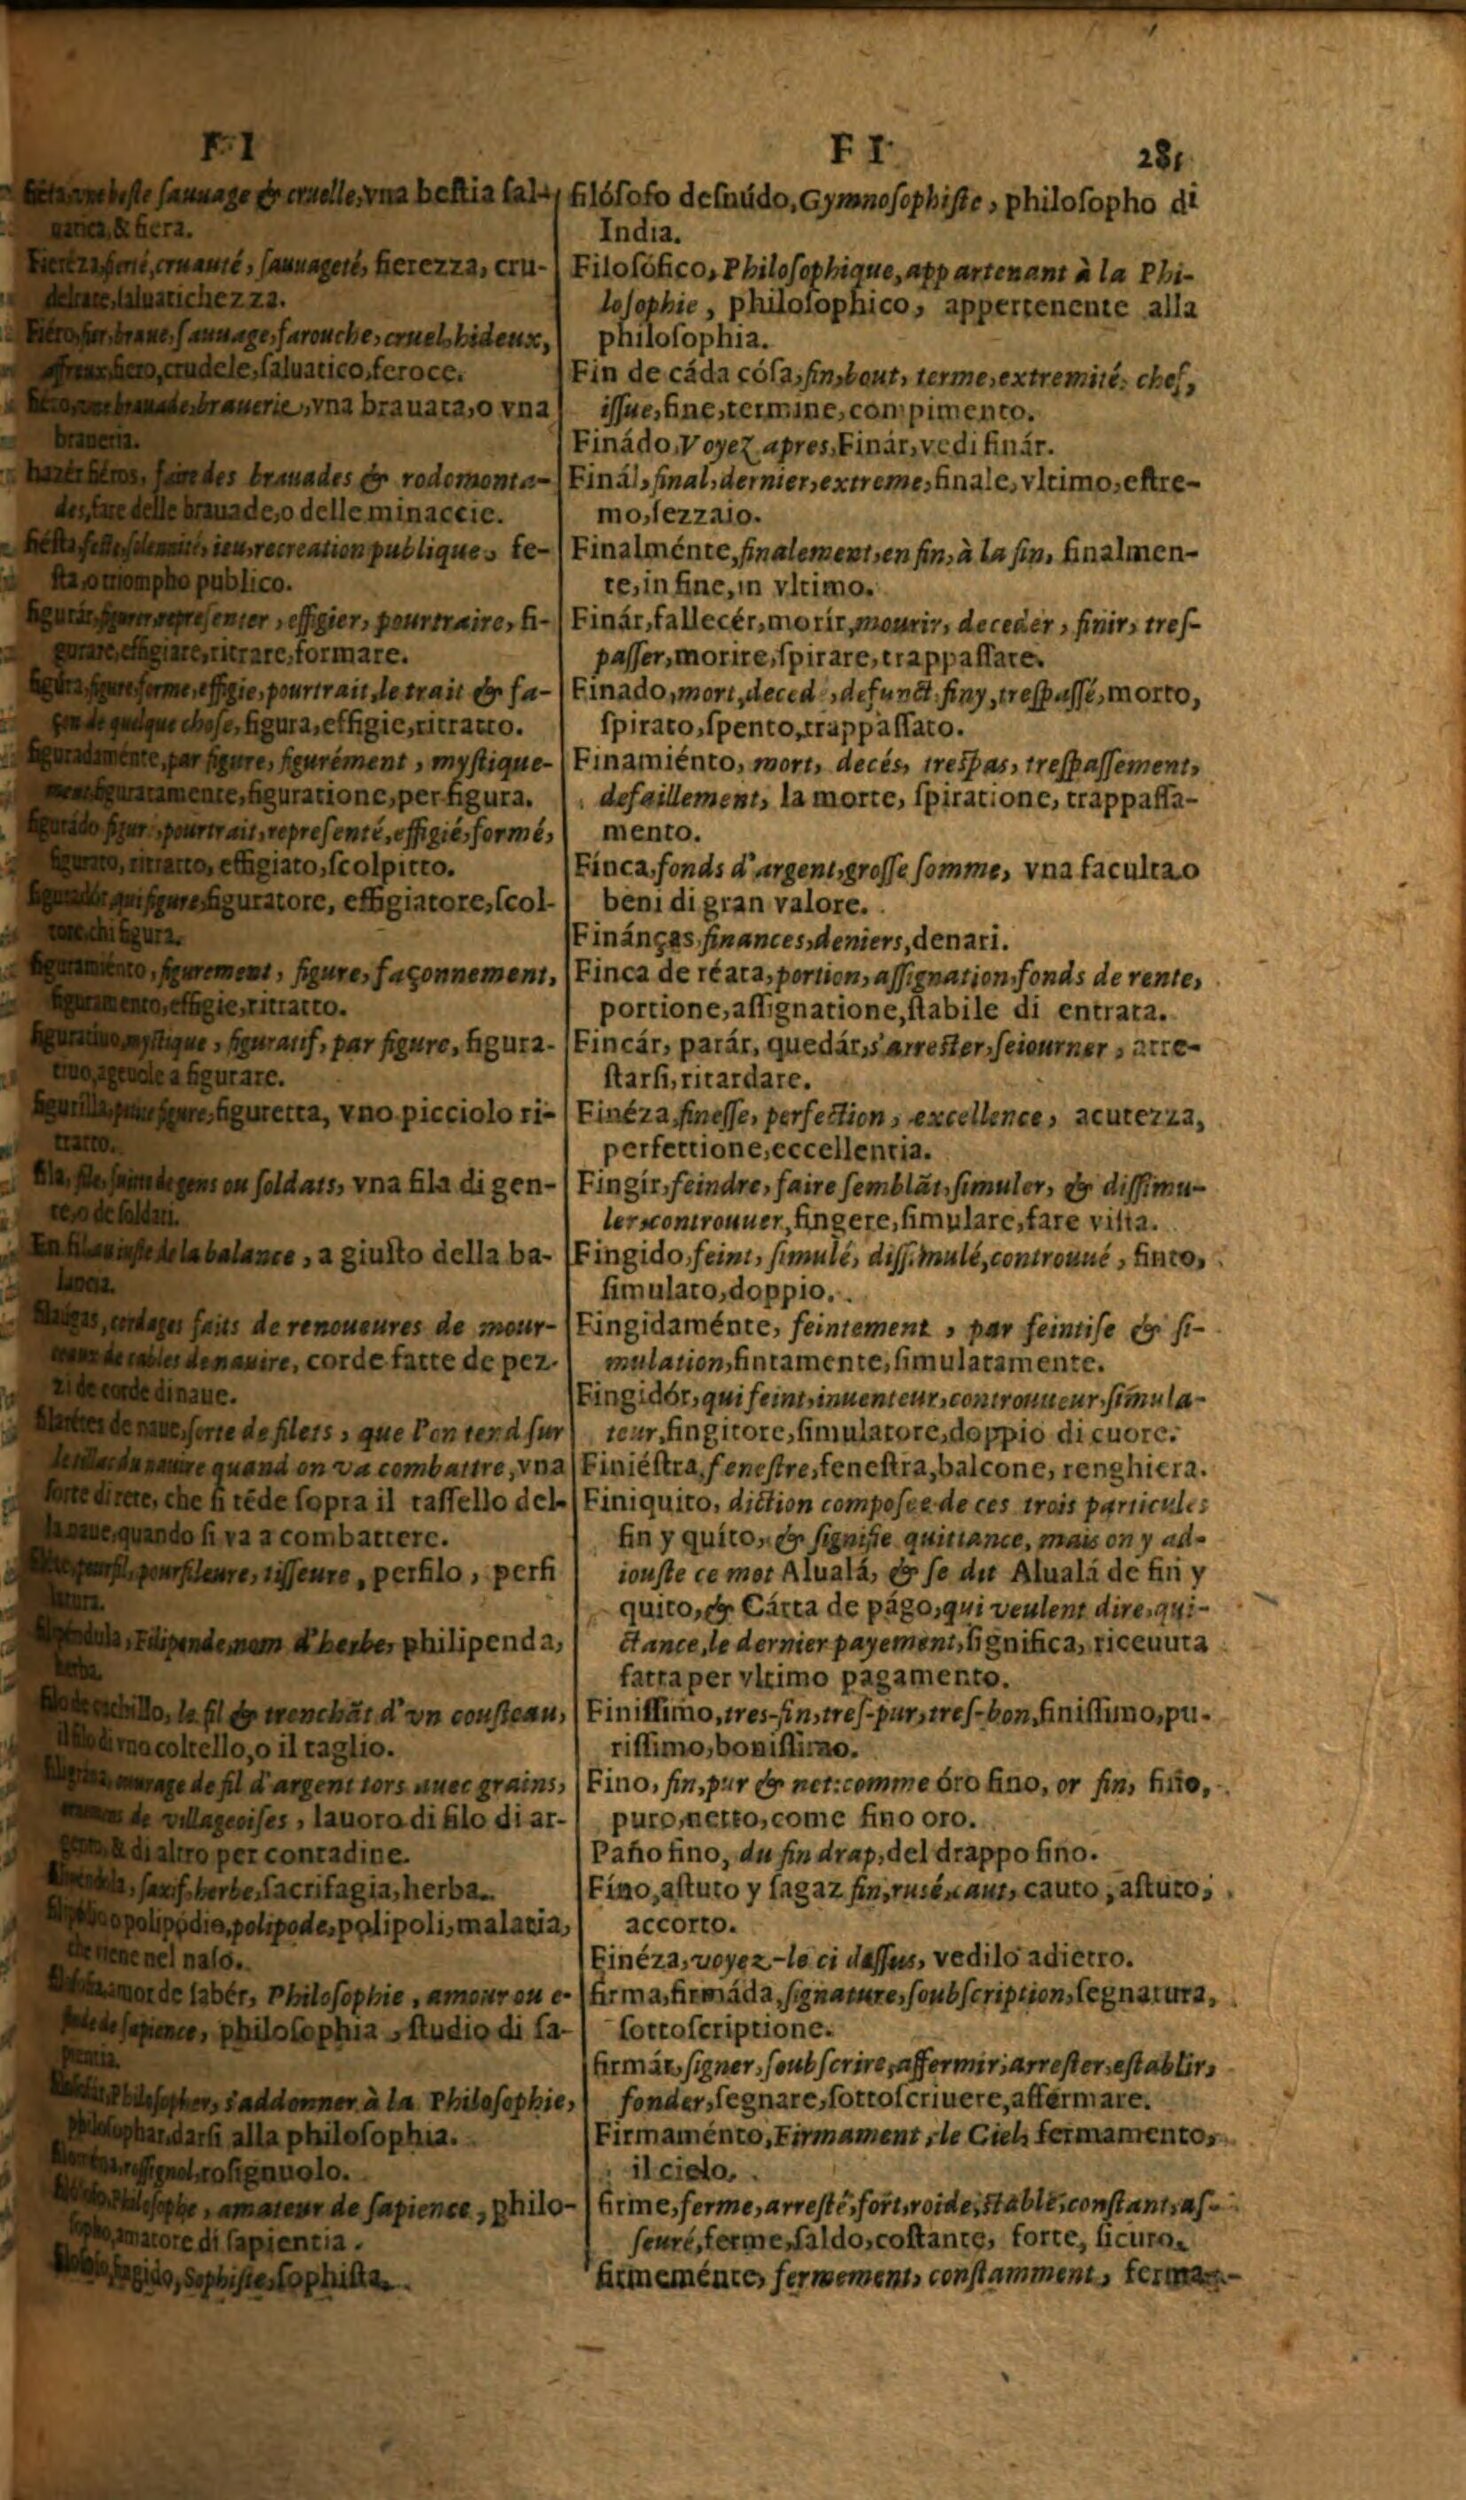 F I
ſauuage & cruelle, vna beſtia ſal-
& fiera.
cruauté, ſauuageté, fierezza, cru-
ſaluatichezza.
braue, ſauuage, farouche, cruel, hideux,
fiero, crudele, ſaluatico, feroce.
brauerie, vna brauata, o vna
braueria.
hazér fiéros, faire des brauades & rodomonta-
des, fare delle brauade, o delle minaccie.
ieu, recreation publique, fe-
ſta, o triompho publico.
repreſenter, effigier, pourtraire, fi-
gurare, effigiare, ritrare, formare.
figure, forme, effigie, pourtrait, le trait & fa-
çon de quelque choſe, figura, effigie, ritratto.
figuradaménte, par figure, figurément, myſtique-
figuratamente, figuratione, per figura.
pourtrait, repreſenté, effigié, formé,
figurato, ritratto, effigiato, ſcolpitto.
qui figure, figuratore, effigiatore, ſcol-
tore, chi figura.
figuramiénto, figurement, figure, façonnement,
figuramento, effigie, ritratto.
myſtique, figuratif, par figure, figura-
a figurare.
figure, figuretta, vno picciolo ri-
tratto.
de gens ou ſoldats, vna fila di gen-
te, o de ſoldati.
de la balance, a giuſto della ba-
lancia.
cordages faits de renoueures de mour-
de nauire, corde fatte de pez-
zi de corde di naue.
de naue, ſorte de filets, que l'on tend ſur
quand on va combattre, vna
ſorte di rete, che ſi tẽde ſopra il taſſello del-
la naue, quando ſi va a combattere.
pourfileure, tiſſeure, perfilo, perfi
latura.
Filipende, nom d'herbe, philipenda,
herba.
filo de cuchillo, le fil & trenchãt d'vn couſteau,
coltello, o il taglio.
ouurage de fil d'argent tors auec grains,
de villageoiſes, lauoro di filo di ar-
& di altro per contadine.
herbe, ſacrifagia, herba.
polipódio, polipode, polipoli, malatia,
che viene nel naſo.
amor de ſabér, Philoſophie, amour ou e-
ſapience, philoſophia, ſtudio di ſa-
pientia.
Philoſopher, s'addonner à la Philoſophie,
philoſophar, darſi alla philoſophia.
roſſignol, roſignuolo.
Philoſophe, amateur de ſapience, philo-
ſopho, amatore di ſapientia.
Sophiſte, ſophiſta.
F I
281
filóſofo deſnúdo, Gymnoſophiſte, philoſopho di
India.
Filoſófico, Philoſophique, appartenant à la Phi-
loſophie, philoſophico, appertenente alla
philoſophia.
Fin de cáda cóſa, fin, bout, terme, extremité, chef,
iſſue, fine, termine, compimento.
Finádo, Voyez apres, Finár, vedi finár.
Finál, final, dernier, extreme, finale, vltimo, eſtre-
mo, ſezzaio.
Finalménte, finalement, en fin, à la fin, finalmen-
te, in fine, in vltimo.
Finár, fallecér, morír, mourir, deceder, finir, treſ-
paſſer, morire, ſpirare, trappaſſare.
Finado, mort, deced, defunct, finy, treſpaſſé, morto,
ſpirato, ſpento, trappaſſato.
Finamiénto, mort, decés, treſpas, treſpaſſement,
defaillement, la morte, ſpiratione, trappaſſa-
mento.
Fínca, fonds d'argent, groſſe ſomme, vna faculta o
beni di gran valore.
Finánças, finances, deniers, denari.
Finca de réata, portion, aſſignation, fonds de rente,
portione, aſſignatione, ſtabile di entrata.
Fincár, parár, quedár, s'arreſter, ſeiourner, arre-
ſtarſi, ritardare.
Finéza, fineſſe, perfection, excellence, acutezza,
perfettione, eccellentia.
Fingír, feindre, faire ſemblãt, ſimuler, & diſſimu-
ler, controuuer, fingere, ſimulare, fare viſta.
Fingido, feint, ſimulé, diſſimulé, controuué, finto,
ſimulato, doppio.
Fingidaménte, feintement, par feintiſe & ſi-
mulation, fintamente, ſimulatamente.
Fingidór, qui feint, inuenteur, controuueur, ſimula-
teur, fingitore, ſimulatore, doppio di cuore.
Finiéſtra, feneſtre, feneſtra, balcone, renghiera.
Finiquito, diction compoſee de ces trois particules
fin y quíto, & ſignifie quittance, mais on y ad-
iouſte ce mot Alualá, & ſe dit Alualá de fin y
quito, & Cárta de págo, qui veulent dire, qui-
ctance, le dernier payement, ſignifica, riceuuta
fatta per vltimo pagamento.
Finiſſimo, tres-fin, treſ-pur, treſ-bon, finiſſimo, pu-
riſſimo, boniſſimo.
Fino, fin, pur & net: comme óro fino, or fin, fino,
puro, netto, come fino oro.
Paño fino, du fin drap, del drappo fino.
Fíno, aſtuto y ſagaz, fin, ruſé, caut, cauto, aſtuto,
accorto.
Finéza, voyez-le ci deſſus, vedilo adietro.
firma, firmáda, ſignature, ſoubſcription, ſegnatura,
ſottoſcriptione.
firmár, ſigner, ſoubſcrire, affermir, arreſter, eſtablir,
fonder, ſegnare, ſottoſcriuere, affermare.
Firmaménto, Firmament, le Ciel, fermamento,
il cielo.
firme, ferme, arreſté, fort, roide, ſtable, conſtant, aſ-
ſeuré, ferme, ſaldo, coſtante, forte, ſicuro.
firmeménte, fermement, conſtamment, ferma-